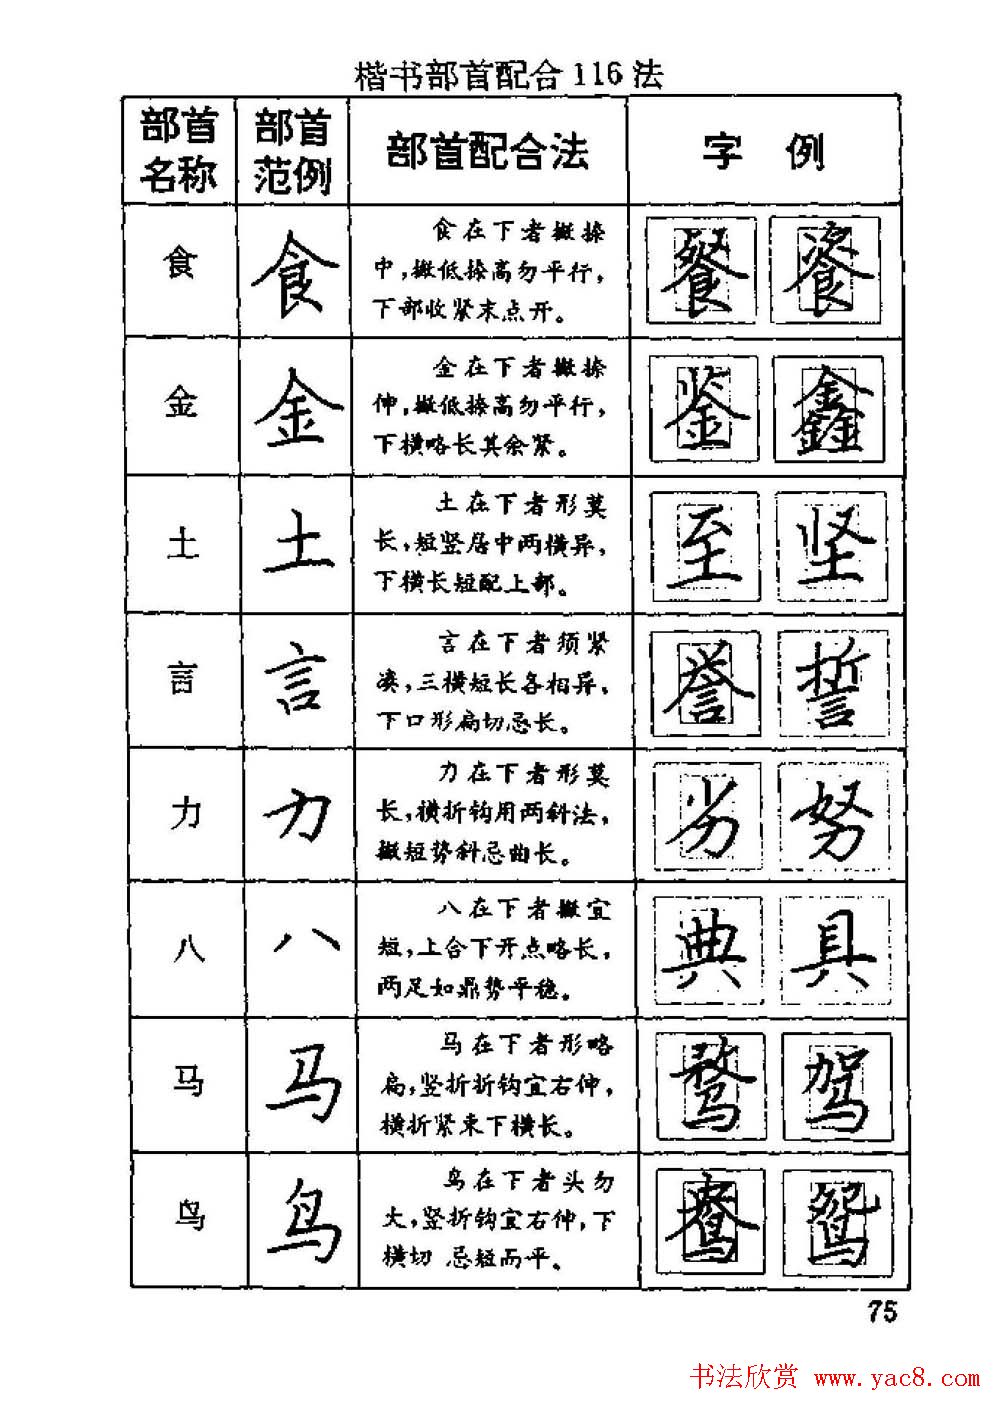 楷书部首配合116法
部首名称 部首范例 部首配合法 字 例
食 食 食在下者撇捺
中,撇低捺高勿平行,
下部收紧末点开。
餐 飡
金 金 金在下者撇捺
伸,撇低捺高勿平行,
下横略长其余紧。
鉴 鑫
土 土 土在下者形莫
长,短竖居中两横异,
下横长短配上部。
至 坚
言 言 言在下者须紧
凑,三横短长各相异,
下口形扁切忌长。
誉 誓
力 力 力在下者形莫
长,横折钩用两斜法,
撇短势斜忌曲长。
劣 努
八 八 八在下者撇宜
短,上合下开点略长,
两足如鼎势平稳。
典 具
马 马 马在下者形略
扁,竖折折钩宜右伸,
横折紧束下横长。
骛 驾
鸟 鸟 鸟在下者头勿
大,竖折钩宜右伸,下
横切 忌短而平。
鸯 鸳
75
书法欣赏 www.yac8.com